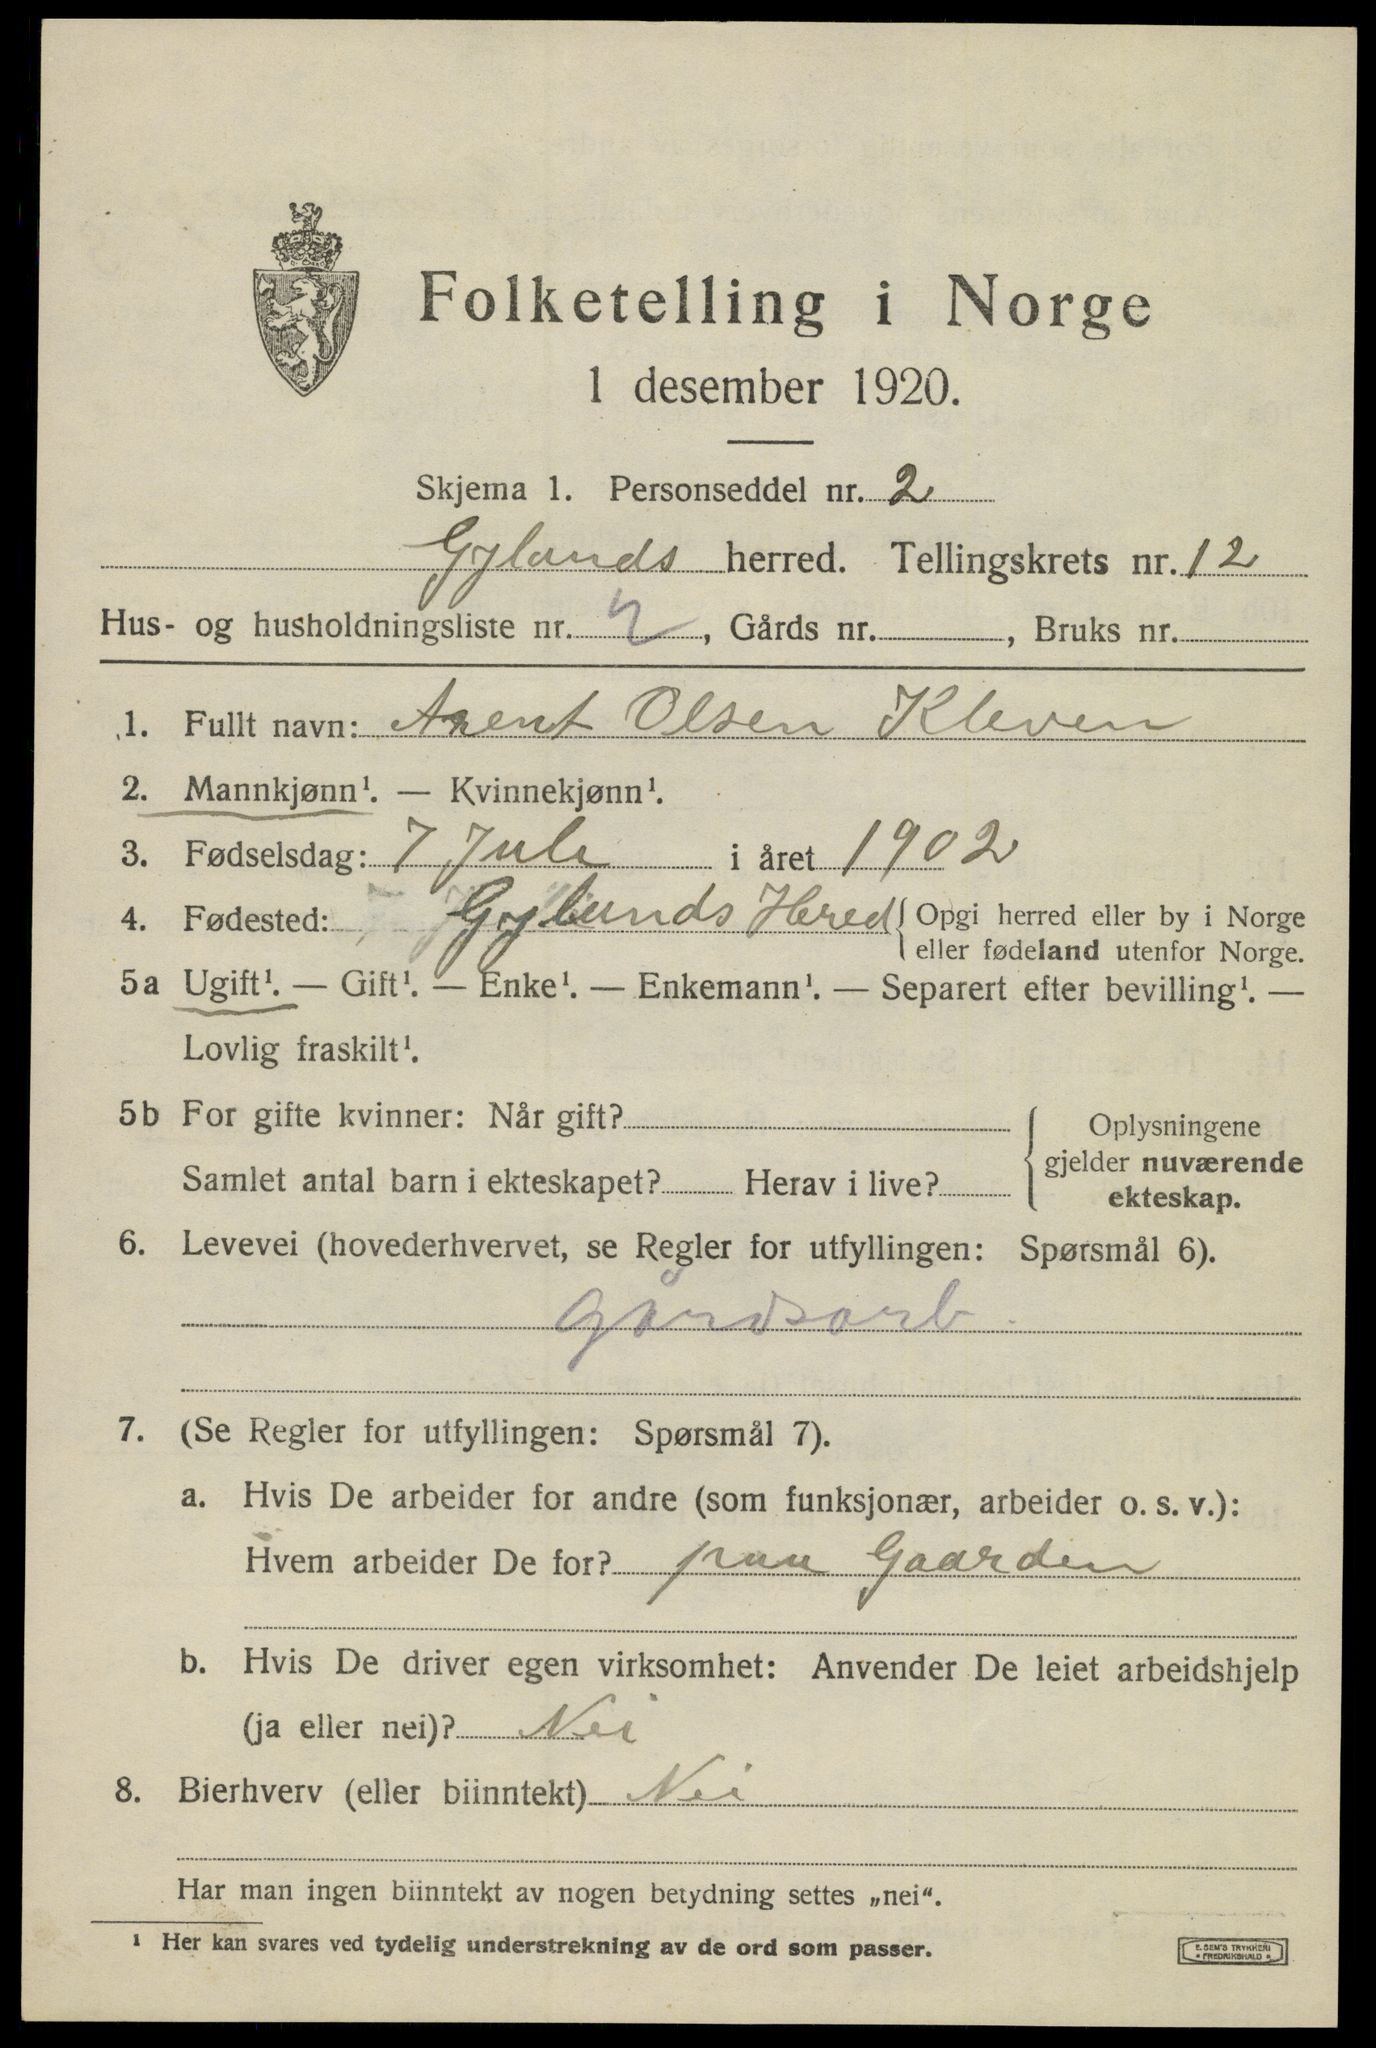 Folketelling i Norge
1 desember 1920.
Skjema 1. Personseddel nr. 2
Gylands herred. Tellingskrets nr. 12
Hus- og husholdningsliste nr. , Gårds nr. , Bruks nr.
1. Fullt navn: Arent Olsen Kleven
2. Mannkjønn¹. — Kvinnekjønn¹.
3. Fødselsdag: 7 Juli i året 1902
4. Fødested: Gylands Hered { Opgi herred eller by i Norge
eller fødeland utenfor Norge.
5a Ugift¹. — Gift¹. — Enke¹. — Enkemann¹. — Separert efter bevilling¹. —
Lovlig fraskilt¹.
5b For gifte kvinner: Når gift?
Samlet antal barn i ekteskapet? Herav i live?
{ Oplysningene
gjelder nuværende
ekteskap.
6. Levevei (hovederhvervet, se Regler for utfyllingen: Spørsmål 6).
gårdsarb.
7. (Se Regler for utfyllingen: Spørsmål 7).
a. Hvis De arbeider for andre (som funksjonær, arbeider o. s. v.):
Hvem arbeider De for? paa Gaarden
b. Hvis De driver egen virksomhet: Anvender De leiet arbeidshjelp
(ja eller nei)? Nei
8. Bierhverv (eller biinntekt) Nei
Har man ingen biinntekt av nogen betydning settes „nei“.
¹ Her kan svares ved tydelig understrekning av de ord som passer.
E. SEM'S TRYKKERI
* FREDRIKSHALD *